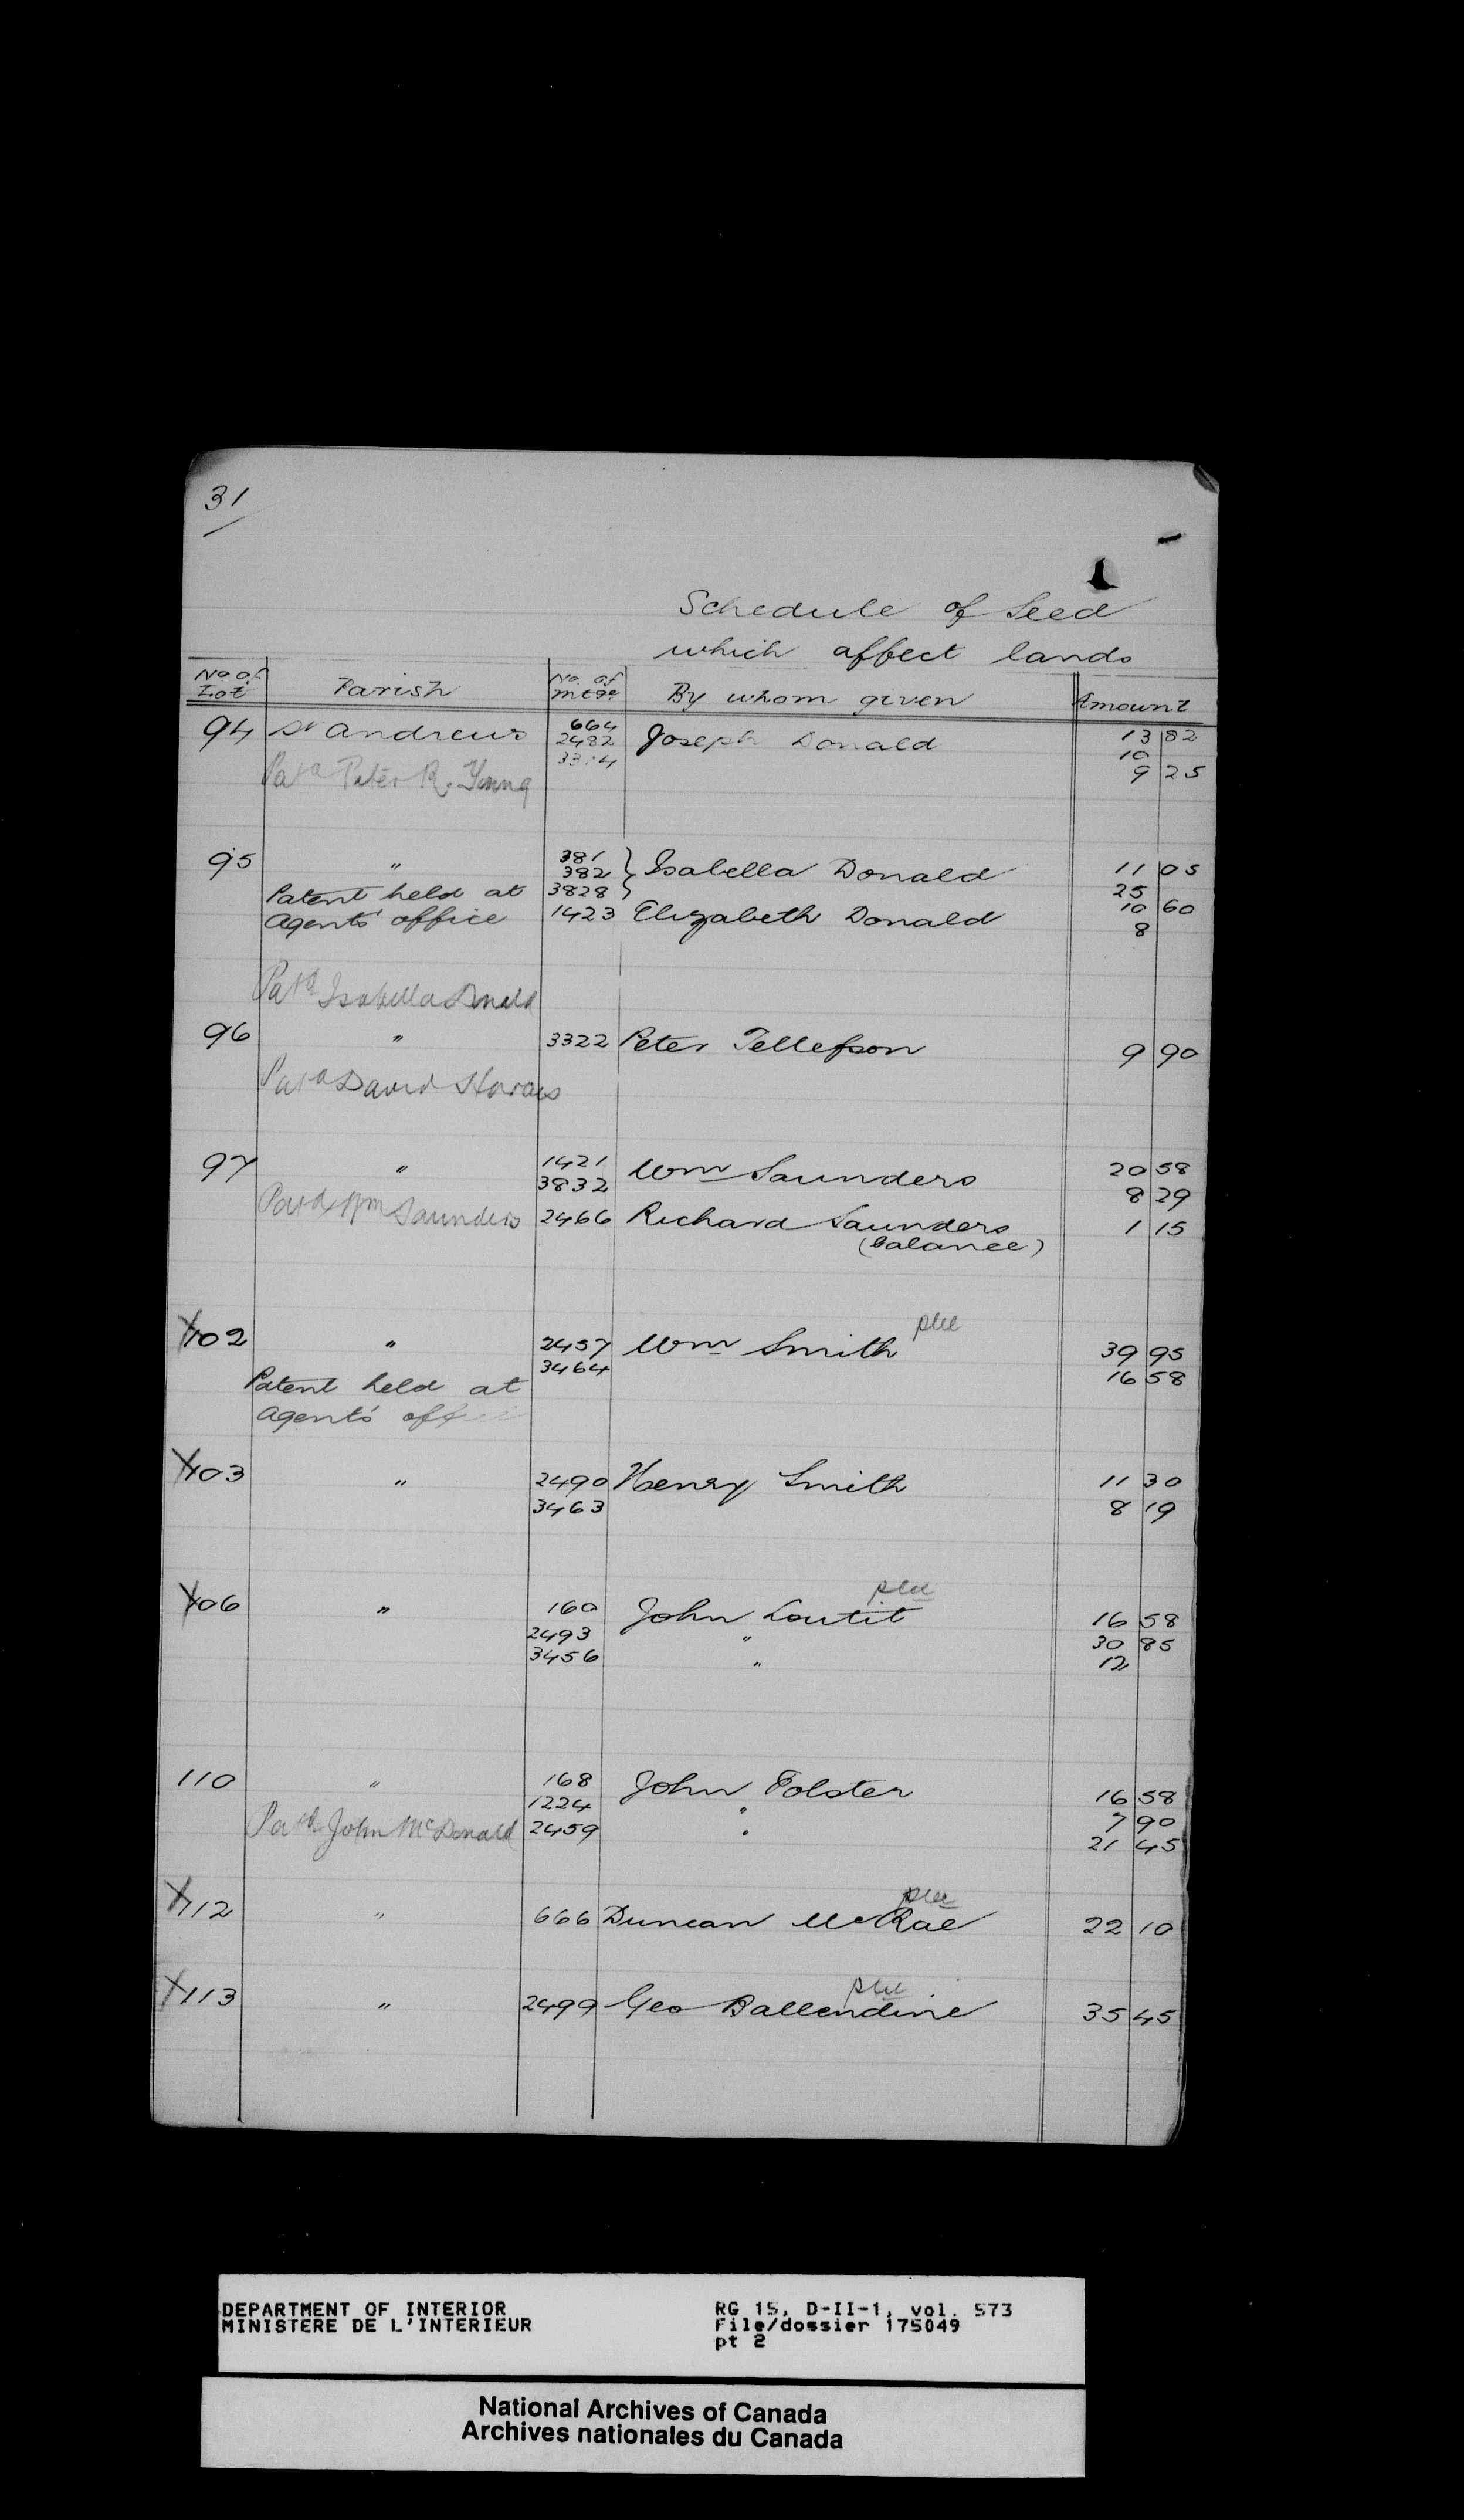 31
Schedule of Seed
which affect lands
No of Lot Parish No. of mtge By whom given Amount
94 St Andrews 664 Joseph Donald 13 82
2482 10
9 25
Patd Peter R. Young
95 " 381 } Isabella Donald 11 05
382 25
Patent held at 3828 10 60
Agents' office 1423 Elizabeth Donald 8
Patd Isabella Donald
96 " 3322 Peter Tellefson 9 90
Patd David
97 " 1421 Wm Saunders 20 58
3832 8 29
Patd Wm Saunders 2466 Richard Saunders 1 15
(balance)
X102 " 2457 Wm Smith 39 95
3464 16 58
Patent held at
Agents' off
X103 " 2490 Henry Smith 11 30
3463 8 19
X106 " 160 John Loutit 16 58
2493 " 30 85
3456 " 12
110 " 168 John Folster 16 58
1224 " 7 90
Patd John McDonald 2459 " 21 45
X112 " 666 Duncan McRae 22 10
X113 " 2499 Geo Ballendine 35 45
DEPARTMENT OF INTERIOR
MINISTERE DE L'INTERIEUR
RG 15, D-II-1, vol. 573
File/dossier 175049
pt 2
National Archives of Canada
Archives nationales du Canada